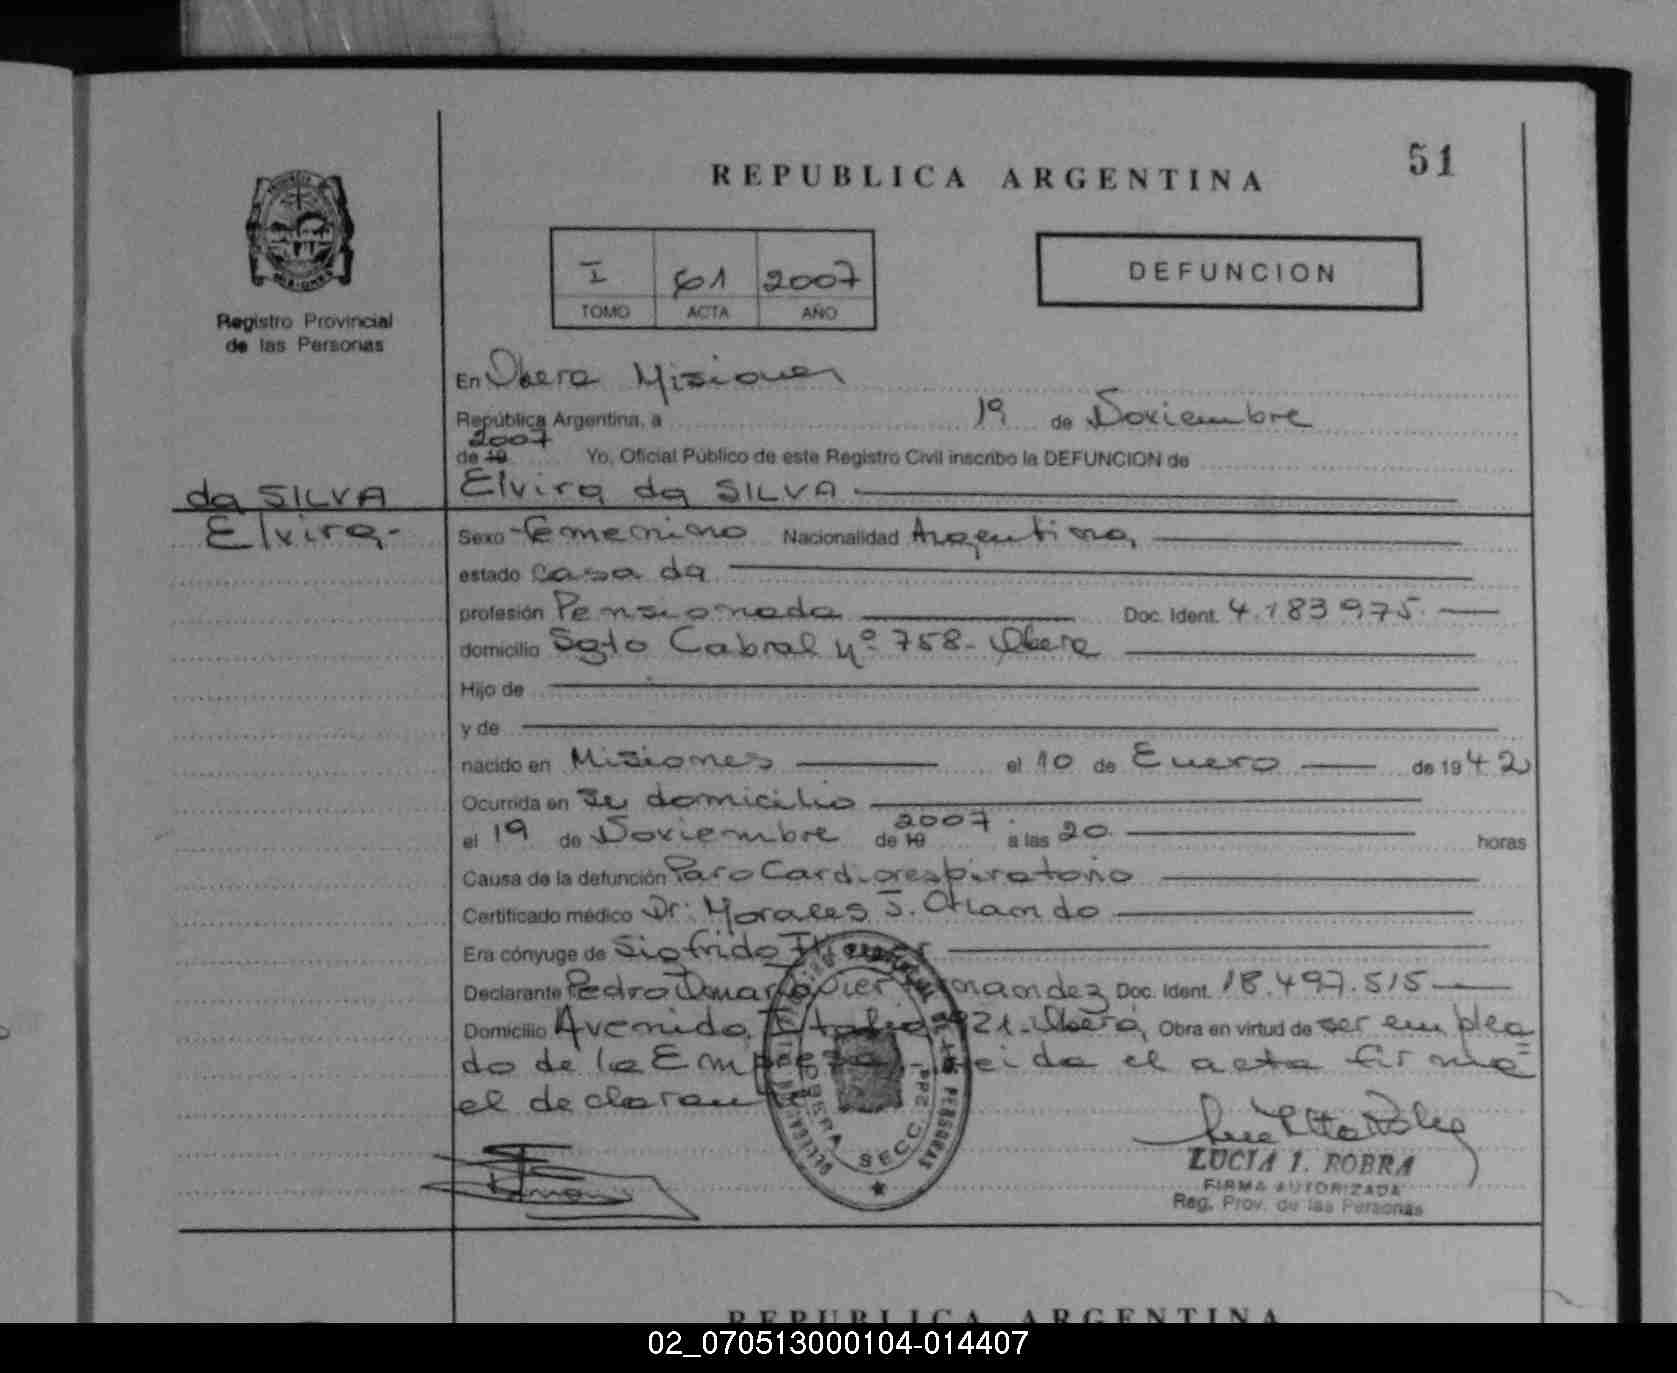 51
REPUBLICA ARGENTINA
I 61 2007
TOMO ACTA AÑO
DEFUNCION
Registro Provincial
de las Personas
En Obera Misiones
República Argentina, a 19 de Noviembre
2007
de 19 Yo, Oficial Público de este Registro Civil inscribo la DEFUNCION de
da SILVA
Elvira da SILVA
Elvira.-
Sexo Femenino Nacionalidad Argentina,
estado casada
profesión Pensionada Doc. Ident. 4.183975.
domicilio Sgto Cabral nº 758- Obera
Hijo de
y de
nacido en Misiones el 10 de Enero de 1942
Ocurrida en su domicilio
el 19 de Noviembre de 19 2007 a las 20 horas
Causa de la defunción Paro Cardiorespiratorio
Certificado médico Dr. Morales J. Orlando
Era cónyuge de Sigfrido
Declarante Pedro Omar Fernandez Doc. Ident. 18.497.515
Domicilio Avenida Italia 921- Obera, Obra en virtud de ser emplea
do de la Empresa, Leida el acta firma=
el declarante
OBERA SECC. 2
LUCIA I. ROBRA
FIRMA AUTORIZADA
Reg. Prov. de las Personas
REPUBLICA ARGENTINA
02_070513000104-014407